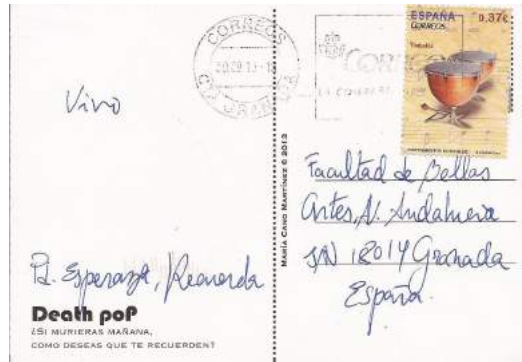 CORREOS
GRANADA
CORREOS
ESPAÑA 0,37€
CORREOS
Timbales
Vivo
Pd. Esperanza, Recuerda
Death poP
¿SI MURIERAS MAÑANA,
COMO DESEAS QUE TE RECUERDEN?
MARÍA CANO MARTÍNEZ © 2013
Facultad de Bellas
Artes, A. Andalucía
S/N 18014 Granada
España.